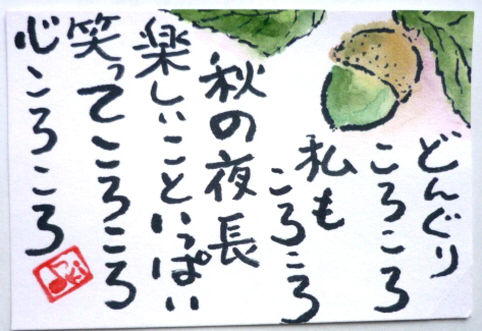 どんぐり
ころころ
私も
ころころ
秋の夜長
楽しいこといっぱい
笑ってころころ
心ころころ